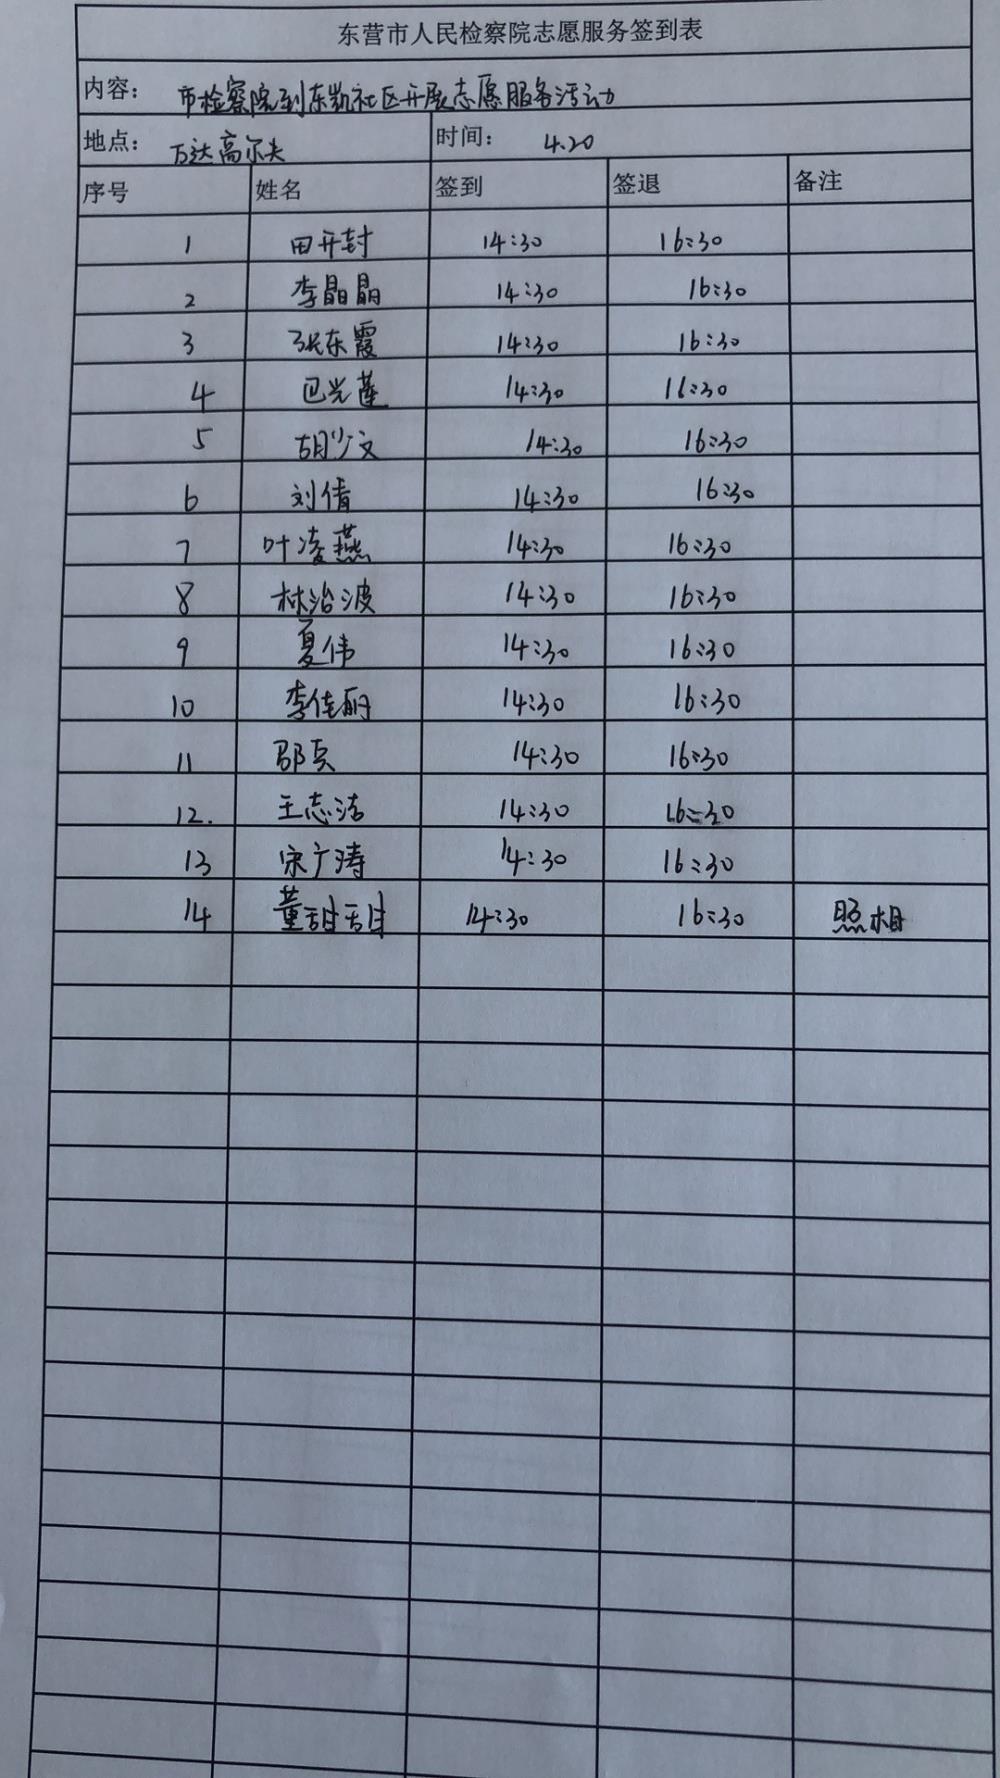 东营市人民检察院志愿服务签到表
内容： 市检察院到东凯社区开展志愿服务活动
地点： 万达高尔夫 时间： 4.20
序号 姓名 签到 签退 备注
1 田开封 14:30 16:30
2 李晶晶 14:30 16:30
3 张东霞 14:30 16:30
4 巴兴莲 14:30 16:30
5 胡少文 14:30 16:30
6 刘倩 14:30 16:30
7 叶凌燕 14:30 16:30
8 林治波 14:30 16:30
9 夏伟 14:30 16:30
10 李佳丽 14:30 16:30
11 14:30 16:30
12. 王志洁 14:30 16:30
13 宋广涛 14:30 16:30
14 董甜甜 14:30 16:30 照相